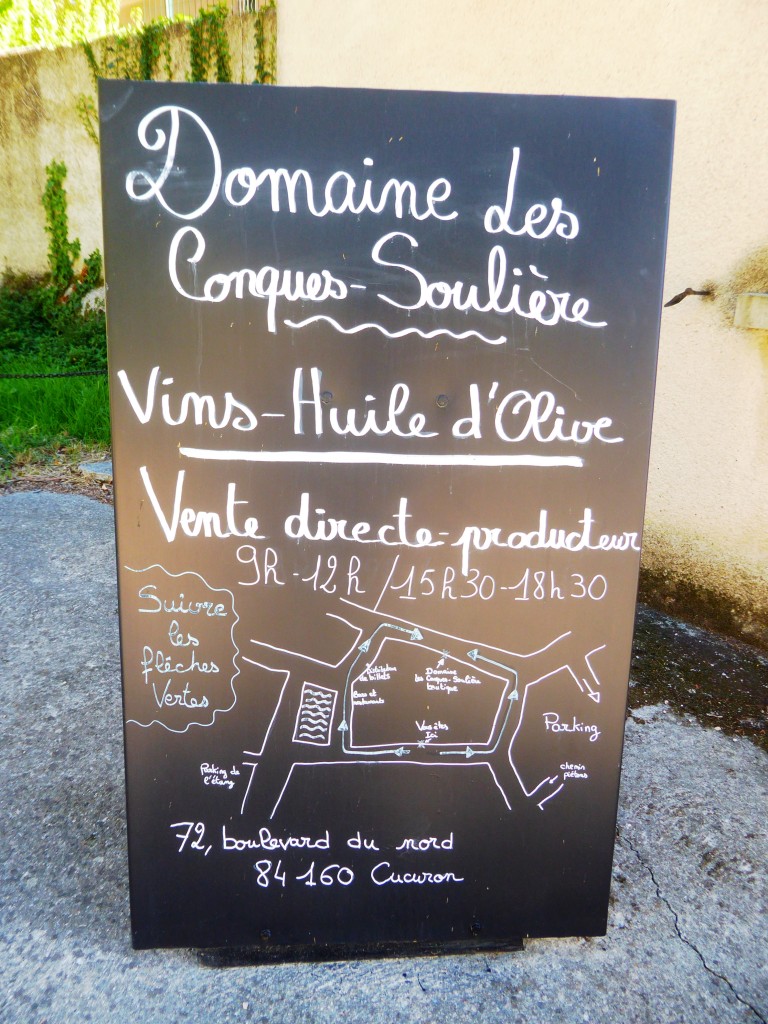 Domaine des
Conques-Soulière
Vins-Huile d'Olive
Vente directe-producteur
9h-12h/15h30-18h30
Suivre
les
flêches
Vertes
Distributeur
de billets
Bars et
restaurants
Domaine
les Conques-Soulière
boutique
Vous êtes
Ici
Parking
Parking de
l'étang
chemin
piétons
72, boulevard du nord
84160 Cucuron